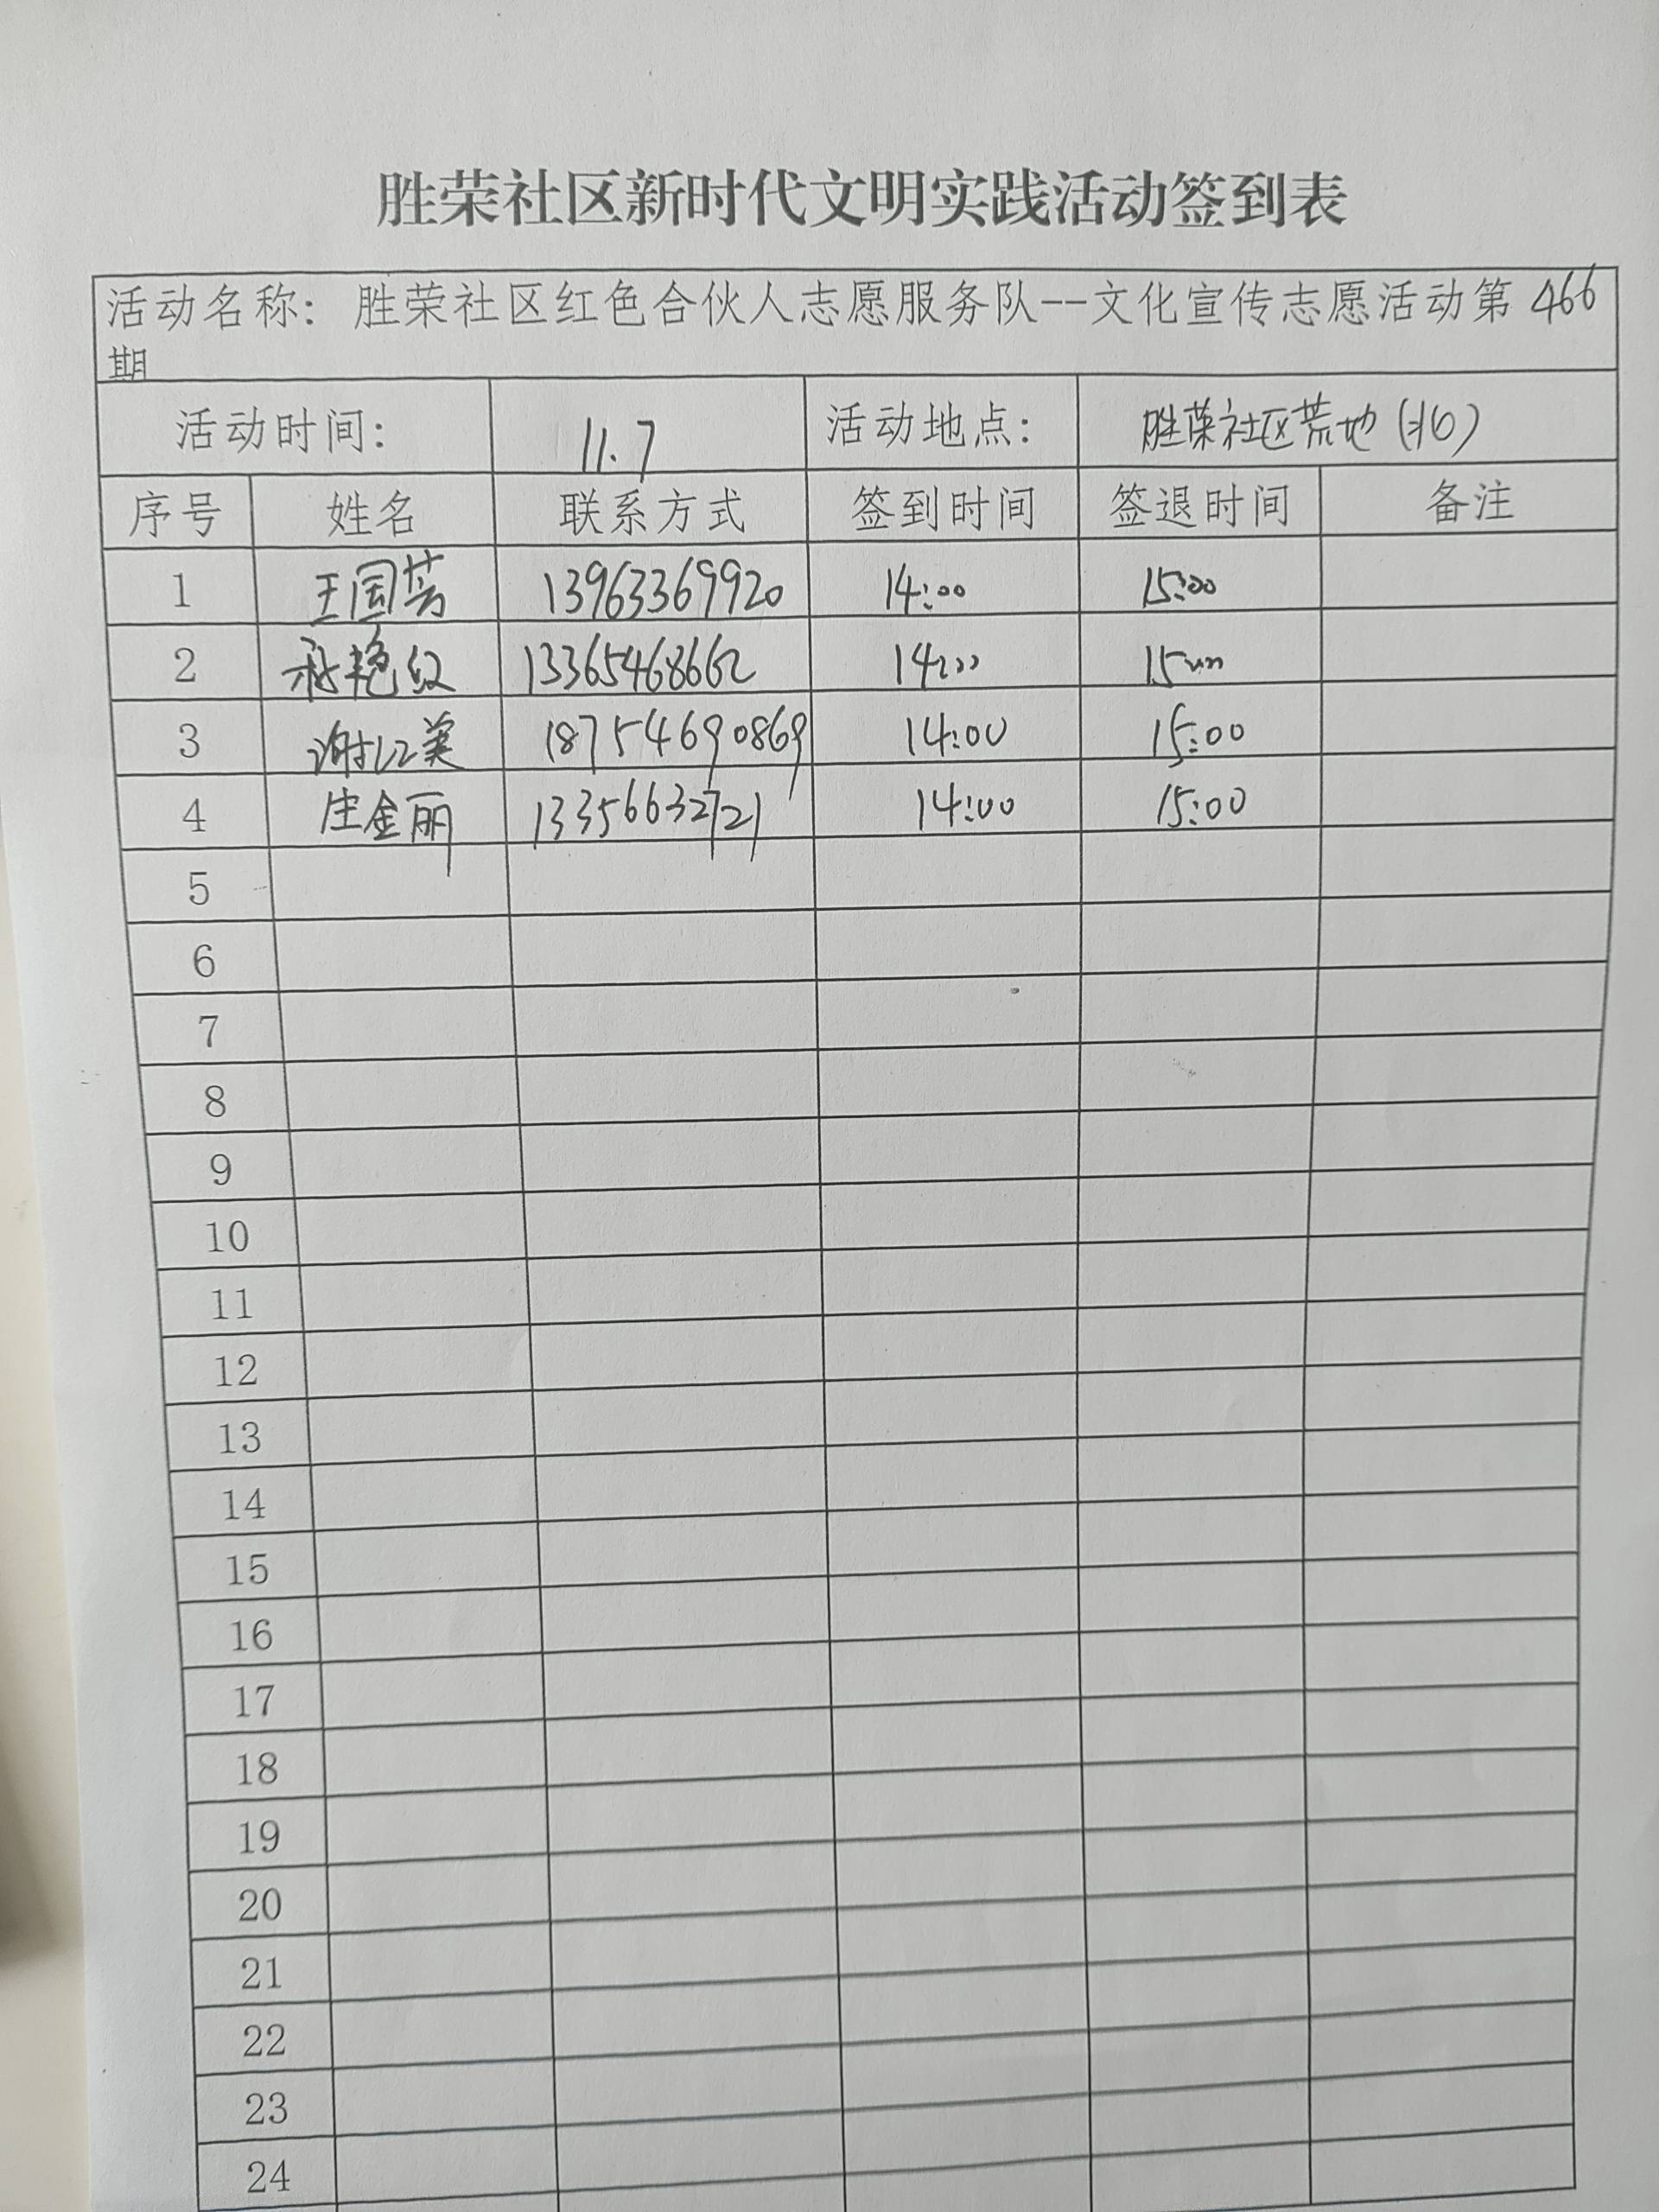 胜荣社区新时代文明实践活动签到表
活动名称：胜荣社区红色合伙人志愿服务队--文化宣传志愿活动第466
期
活动时间： 11.7 活动地点： 胜荣社区荒地（北）
序号 姓名 联系方式 签到时间 签退时间 备注
1 王国芳 13963369920 14:00 15:00
2 艳红 13365468662 14:00 15:00
3 谢红美 18754690869 14:00 15:00
4 庄金丽 13356632721 14:00 15:00
5
6
7
8
9
10
11
12
13
14
15
16
17
18
19
20
21
22
23
24